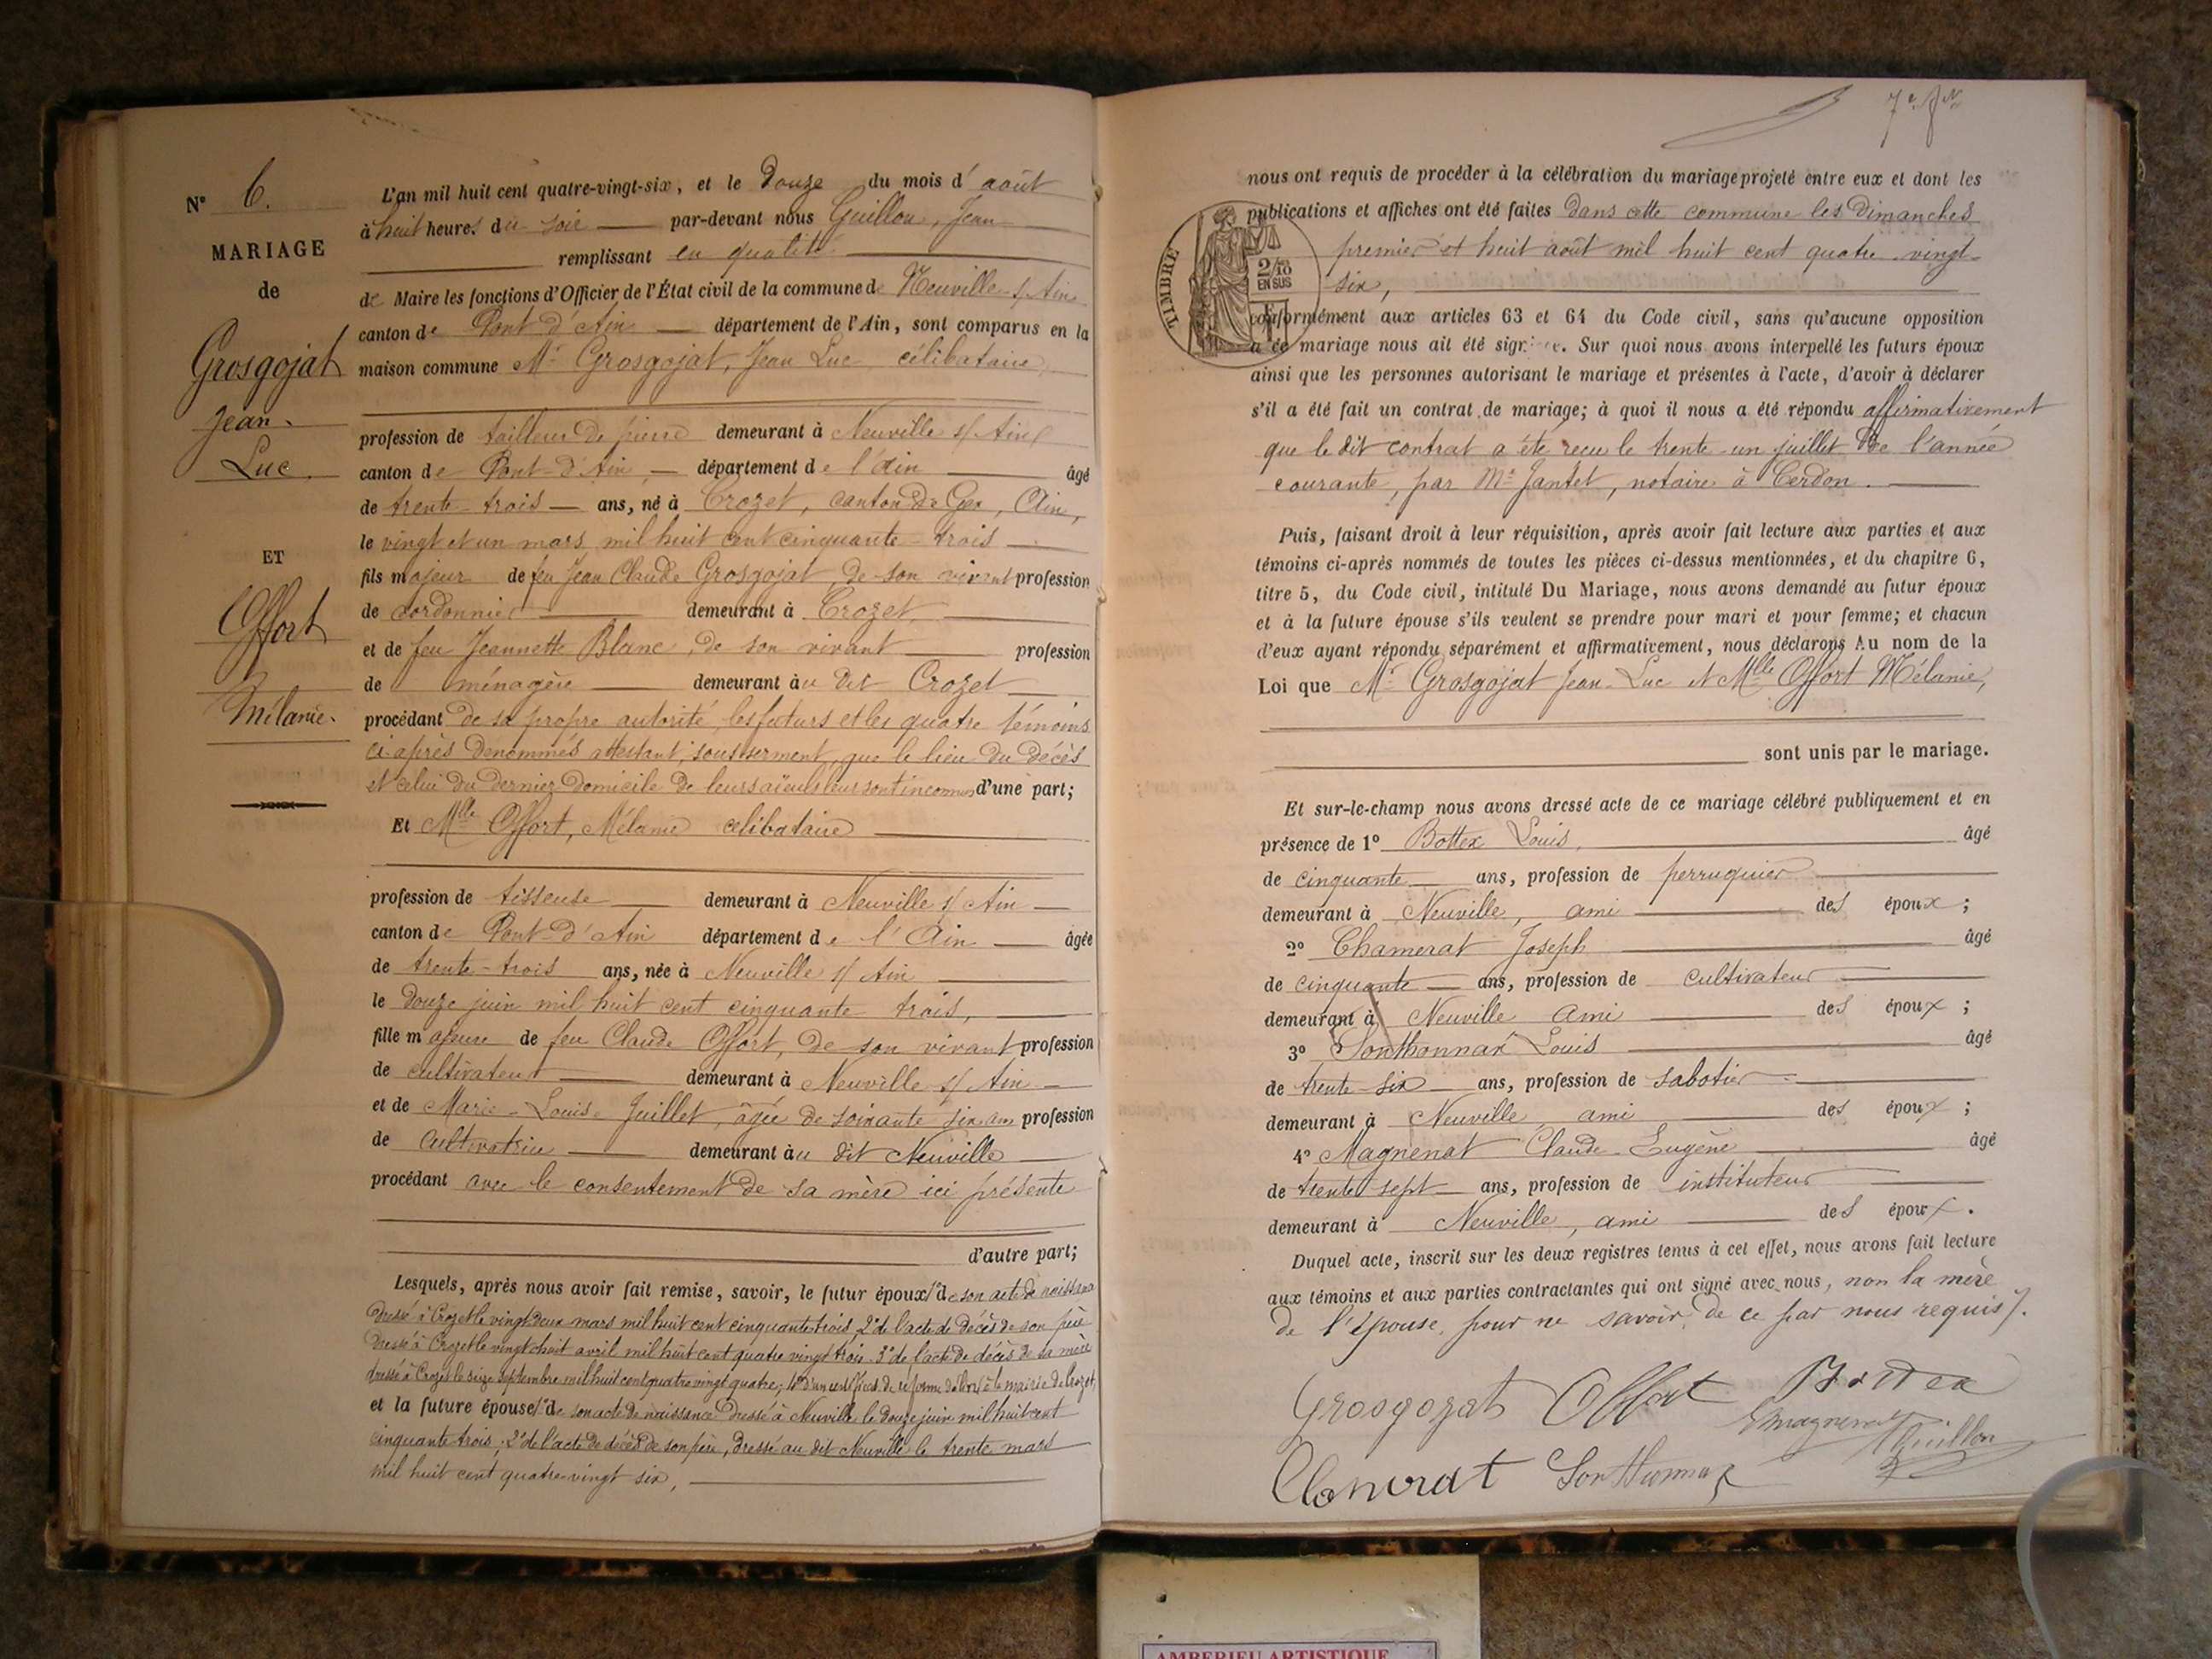 N° 6.
MARIAGE
de
Grosgojat
Jean-
Luc.
ET
Offort
Mélanie.
L'an mil huit cent quatre-vingt-six, et le douze du mois d'août
à huit heures du soir par-devant nous Guillon, Jean
remplissant en qualité
de Maire les fonctions d'Officier de l'État civil de la commune de Neuville s/ Ain
canton de Pont d'Ain département de l'Ain, sont comparus en la
maison commune Mr Grosgojat, Jean Luc célibataire
profession de tailleur de pierre demeurant à Neuville s/ Ain
canton de Pont-d'Ain département de l'Ain âgé
de trente-trois ans, né à Crozet, canton de Gex, Ain,
le vingt et un mars mil huit cent cinquante-trois
fils majeur de feu Jean Claude Grosgojat, de son vivant profession
de cordonnier demeurant à Crozet
et de feu Jeannette Blanc, de son vivant profession
de ménagère demeurant au dit Crozet
procédant de sa propre autorité, les futurs et les quatre témoins
ci-après dénommés attestant, sous serment, que le lieu du décès
et celui du dernier domicile de leurs aïeuls leur sont inconnus d'une part;
Et Mlle Offort, Mélanie célibataire
profession de tisseuse demeurant à Neuville s/ Ain
canton de Pont-d'Ain département de l'Ain âgée
de trente-trois ans, née à Neuville s/ Ain
le douze juin mil huit cent cinquante trois,
fille majeure de feu Claude Offort, de son vivant profession
de cultivateur demeurant à Neuville s/ Ain
et de Marie-Louise Juillet, âgée de soixante six ans profession
de cultivatrice demeurant au dit Neuville
procédant avec le consentement de sa mère ici présente
d'autre part;
Lesquels, après nous avoir fait remise, savoir, le futur époux 1° de son acte de naissance
dressé à Crozet le vingt deux mars mil huit cent cinquante trois, 2° de l'acte de décès de son père
dressé à Crozet le vingt huit avril mil huit cent quatre vingt trois. 3° de l'acte de décès de sa mère
dressé à Crozet le seize septembre mil huit cent quatre vingt quatre; 4° d'un certificat de réforme délivré à la mairie de Crozet,
et la future épouse 1° de son acte de naissance dressé à Neuville le douze juin mil huit cent
cinquante trois; 2° de l'acte de décès de son père, dressé au dit Neuville le trente mars
mil huit cent quatre-vingt six,
7e
nous ont requis de procéder à la célébration du mariage projeté entre eux et dont les
publications et affiches ont été faites dans cette commune les dimanches
premier et huit août mil huit cent quatre-vingt-
six,
TIMBRE
2/10
EN SUS
conformément aux articles 63 et 64 du Code civil, sans qu'aucune opposition
à ce mariage nous ait été signifiée. Sur quoi nous avons interpellé les futurs époux
ainsi que les personnes autorisant le mariage et présentes à l'acte, d'avoir à déclarer
s'il a été fait un contrat de mariage; à quoi il nous a été répondu affirmativement
que le dit contrat a été reçu le trente-un juillet de l'année
courante, par Me Jantet, notaire à Cerdon.
Puis, faisant droit à leur réquisition, après avoir fait lecture aux parties et aux
témoins ci-après nommés de toutes les pièces ci-dessus mentionnées, et du chapitre 6,
titre 5, du Code civil, intitulé Du Mariage, nous avons demandé au futur époux
et à la future épouse s'ils veulent se prendre pour mari et pour femme; et chacun
d'eux ayant répondu séparément et affirmativement, nous déclarons Au nom de la
Loi que Mr Grosgojat Jean-Luc et Mlle Offort Mélanie,
sont unis par le mariage.
Et sur-le-champ nous avons dressé acte de ce mariage célébré publiquement et en
présence de 1° Bottex Louis, âgé
de cinquante ans, profession de perruquier
demeurant à Neuville, ami des époux;
2° Chamerat Joseph âgé
de cinquante ans, profession de cultivateur
demeurant à Neuville ami des époux;
3° Sonthonnax Louis âgé
de trente-six ans, profession de sabotier
demeurant à Neuville, ami des époux;
4° Magnenat Claude-Eugène âgé
de trente sept ans, profession de instituteur
demeurant à Neuville, ami des époux.
Duquel acte, inscrit sur les deux registres tenus à cet effet, nous avons fait lecture
aux témoins et aux parties contractantes qui ont signé avec nous, non la mère
de l'épouse, pour ne savoir, de ce par nous requis.
Grosgogat Offort Bottex
Emagnenat
Guillon
Chamerat Sonthonnax
AMBERIEU ARTISTIQUE